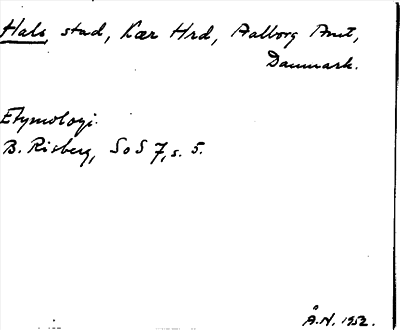 Hals, stad, Kær Hrd, Aalborg Amt,
Danmark.
Etymologi:
B. Risberg, SoS 7, s. 5.
Å.N. 1952.